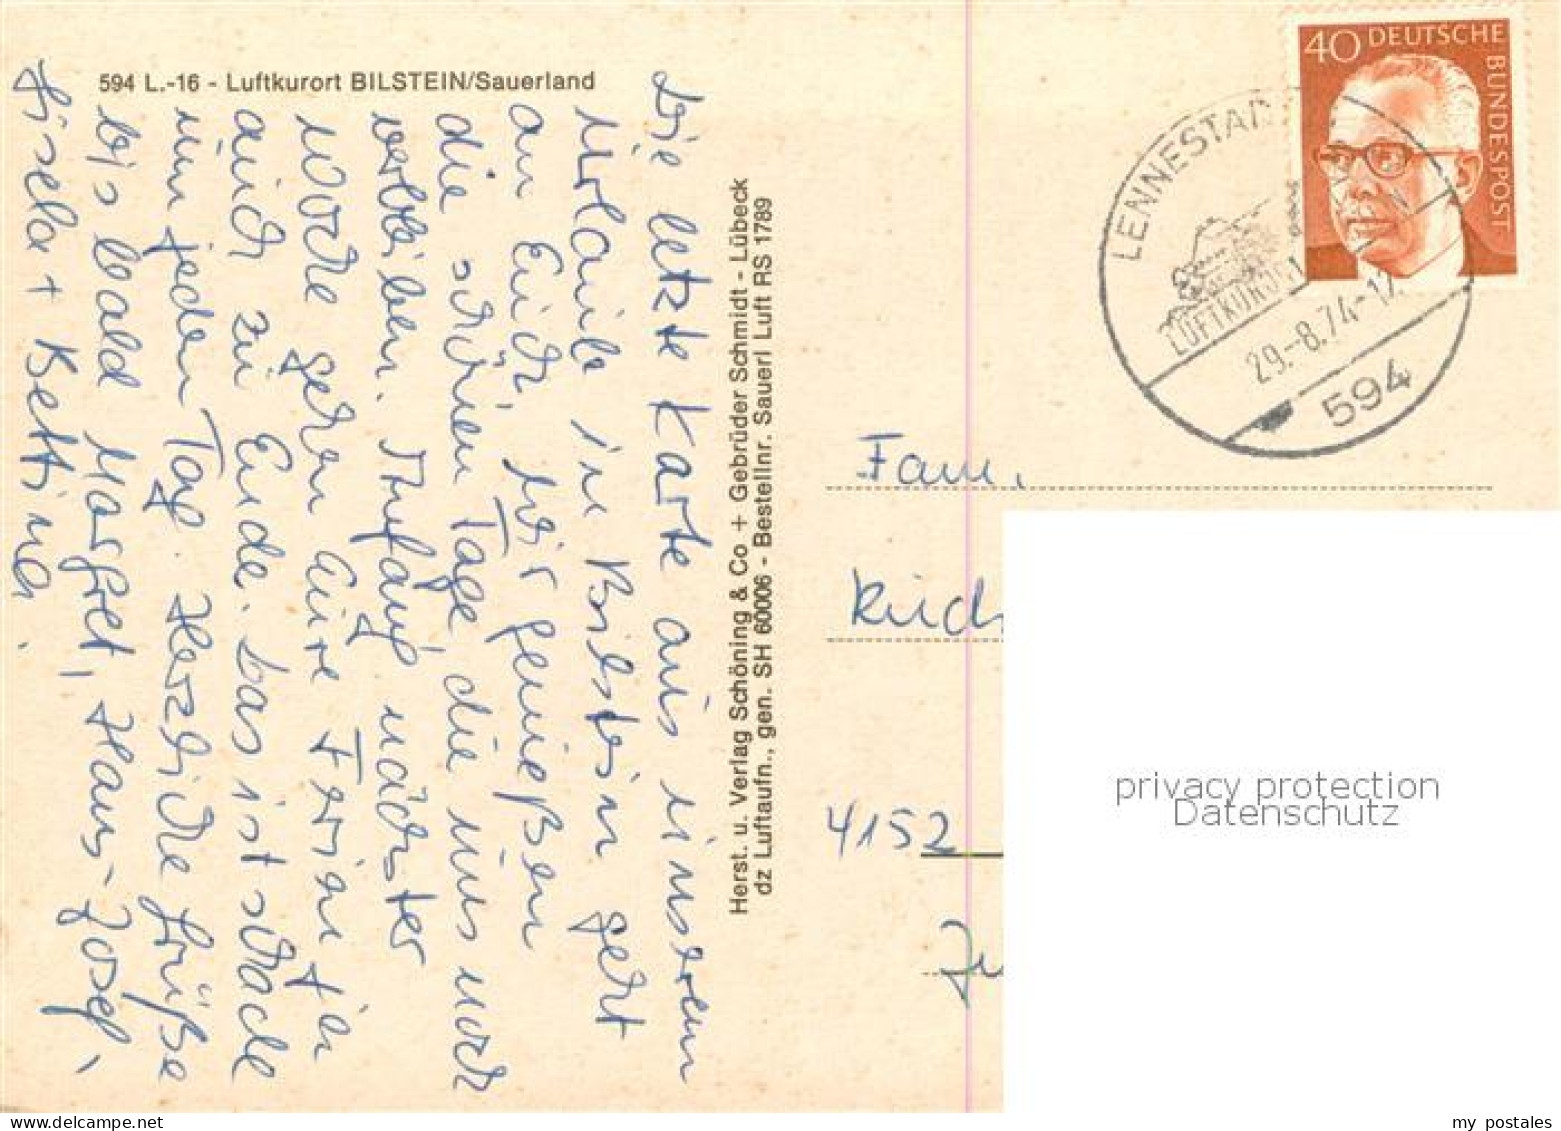 594 L.-16 - Luftkurort BILSTEIN/Sauerland
Die letzte Karte aus unserem
Urlaub in Bilstein geht
an Euch. Wir genießen
die schönen Tage, die uns noch
verbleiben. Anfang nächster
Woche gehen Eure Ferien ja
auch zu Ende. Das ist schade
um jeden Tag. Herzliche Grüße
bis bald Margret, Hans-Josef,
Gisela + Bettina.
Herst. u. Verlag Schöning & Co + Gebrüder Schmidt - Lübeck
dz Luftaufn., gen. SH 60006 - Bestellnr. Sauerl Luft RS 1789
40 DEUTSCHE
BUNDESPOST
LENNESTAD
LUFTKURORT
29.-8.74-17
594
Fam.
4152
privacy protection
Datenschutz
my postales